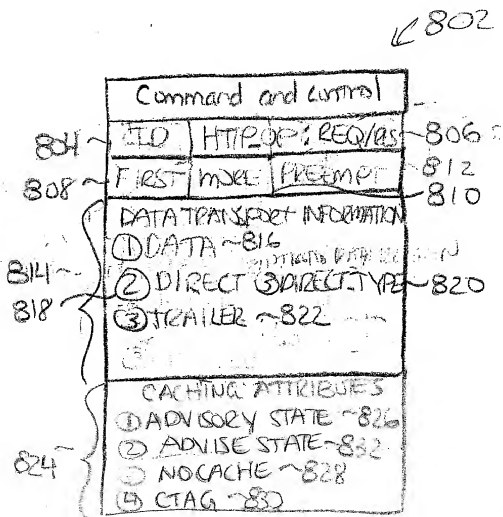 802
Command and control
804 ID HTTP_OP: REQ/RES 806
808 FIRST MORE PREEMPT 812
810
DATA TRANSPORT INFORMATION
① DATA ~816
814
818 ② DIRECT ③ DIRECT.TYPE 820
③ TRAILER ~822
CACHING ATTRIBUTES
① ADVISORY STATE ~826
② ADVISE STATE ~832
824
NOCACHE ~828
④ CTAG ~830